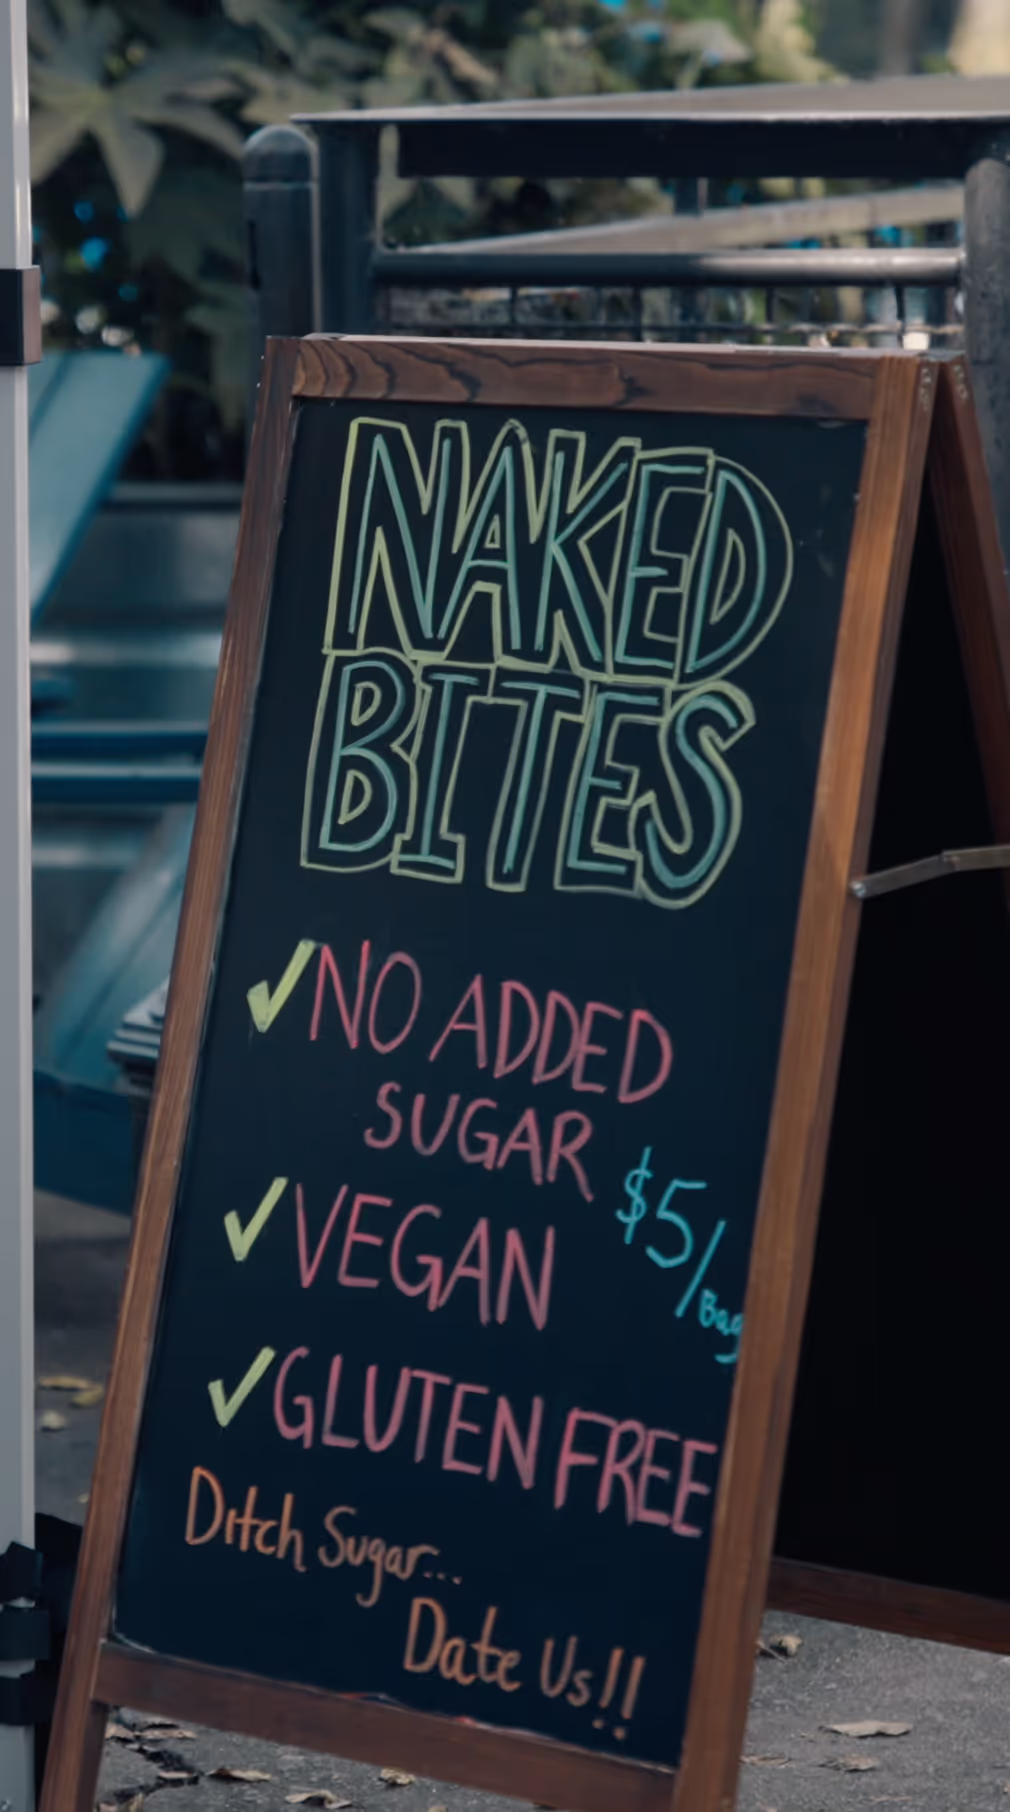 NAKED
BITES
✓ NO ADDED
SUGAR
$5/Bag
✓ VEGAN
✓ GLUTEN FREE
Ditch Sugar...
Date Us!!